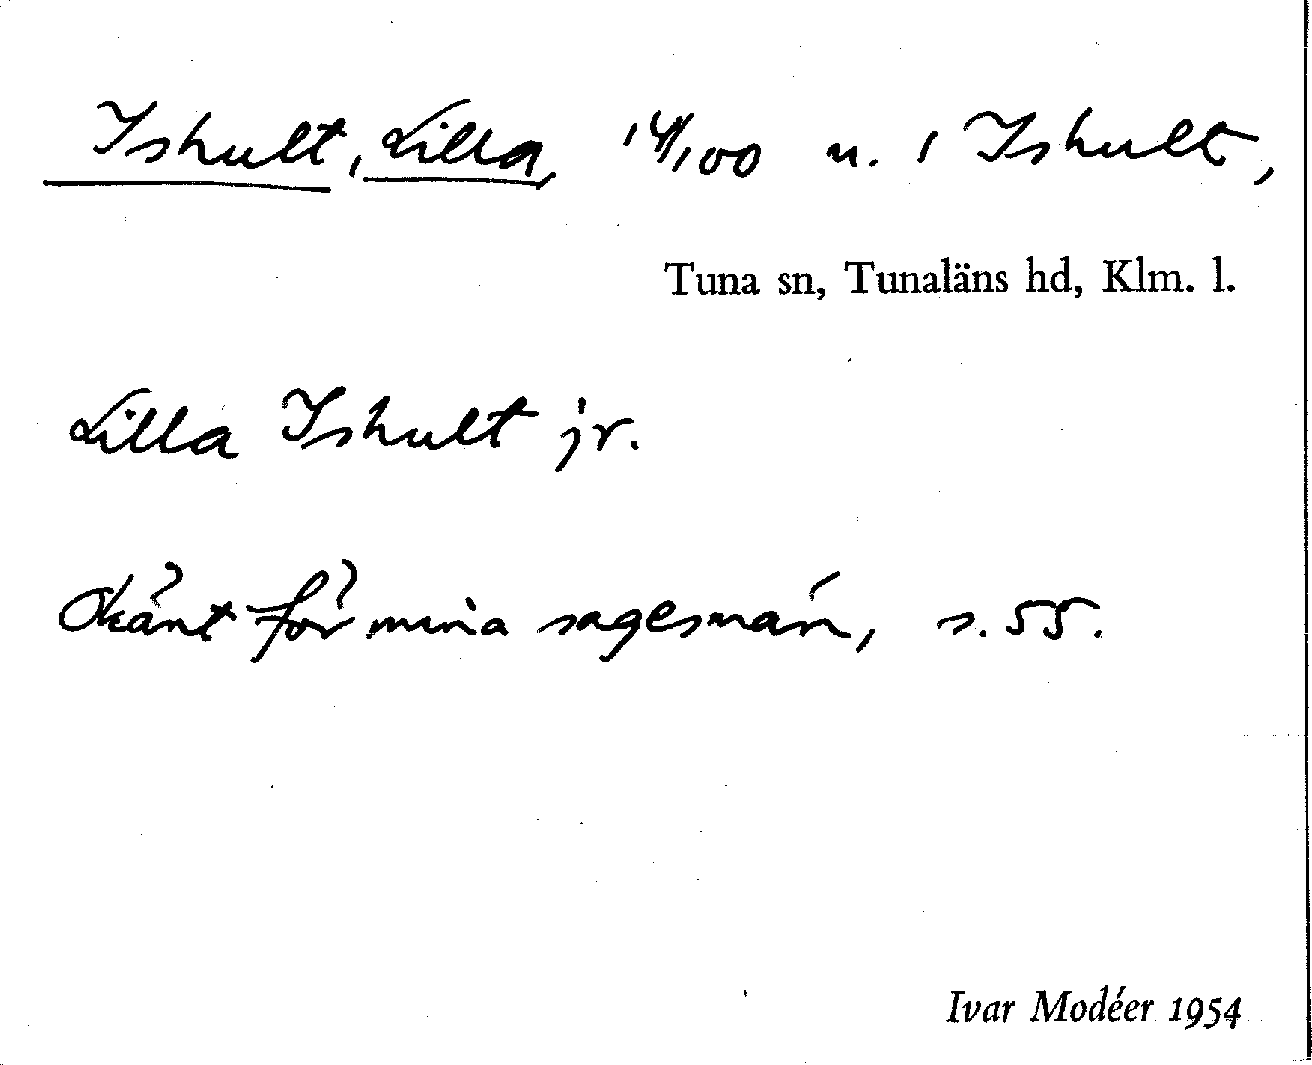 Ishult, Lilla, 14/100 n. 1 Ishult,
Tuna sn, Tunaläns hd, Klm. l.
Lilla Ishult jr.
Okänt för mina sagesmän, s. 55.
Ivar Modéer 1954